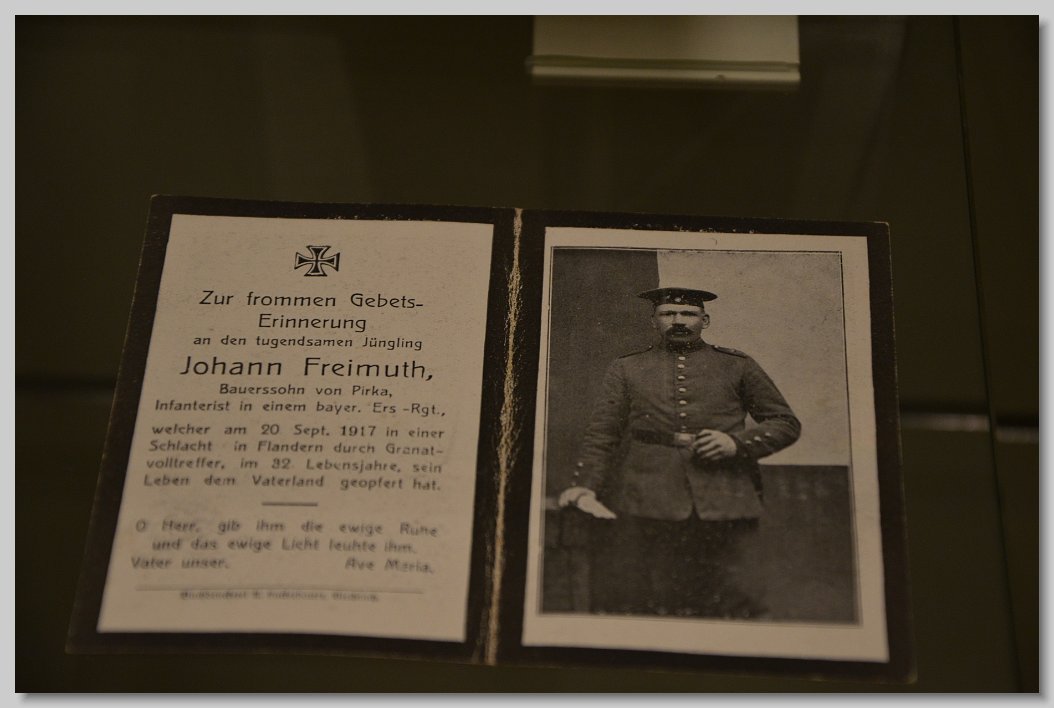 Zur frommen Gebets-
Erinnerung
an den tugendsamen Jüngling
Johann Freimuth,
Bauerssohn von Pirka,
Infanterist in einem bayer. Ers -Rgt.,
welcher am 20 Sept. 1917 in einer
Schlacht in Flandern durch Granat-
volltreffer, im 32. Lebensjahre, sein
Leben dem Vaterland geopfert hat.
O Herr, gib ihm die ewige Ruhe
und das ewige Licht leuhte ihm.
Vater unser. Ave Maria.